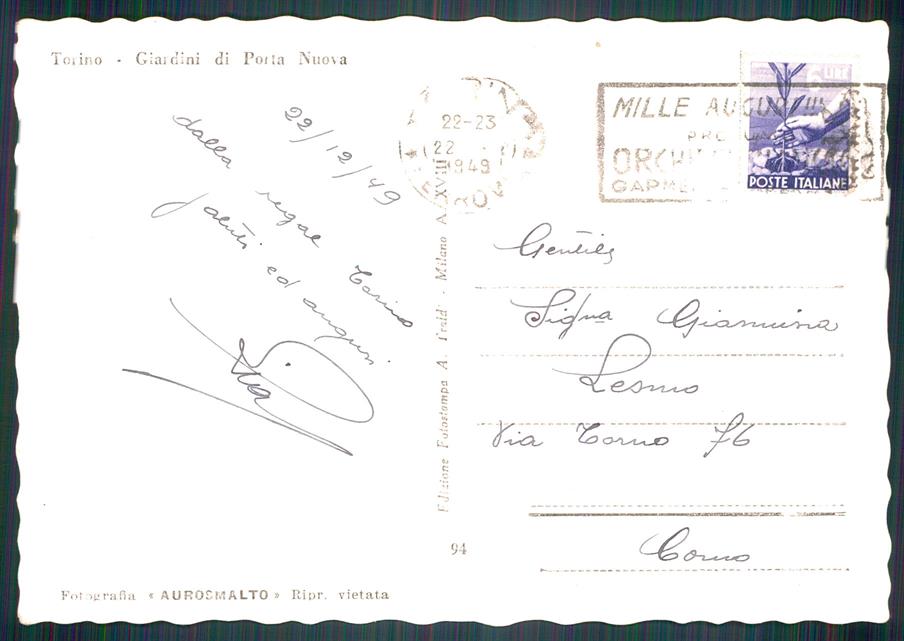 Torino - Giardini di Porta Nuova
22/12/49
dalla regal Torino
saluti ed auguri
22-23
22
1949
MILLE AUGURI
PRO UN
ORCHI
GARME
6 LIRE
POSTE ITALIANE
Gentile
Sig/ua Giannina
Lesmo
Via Torno 76
Como
Edizione Fotostampa A. Traldi - Milano A. XVIII
94
Fotografia « AUROSMALTO » Ripr. vietata